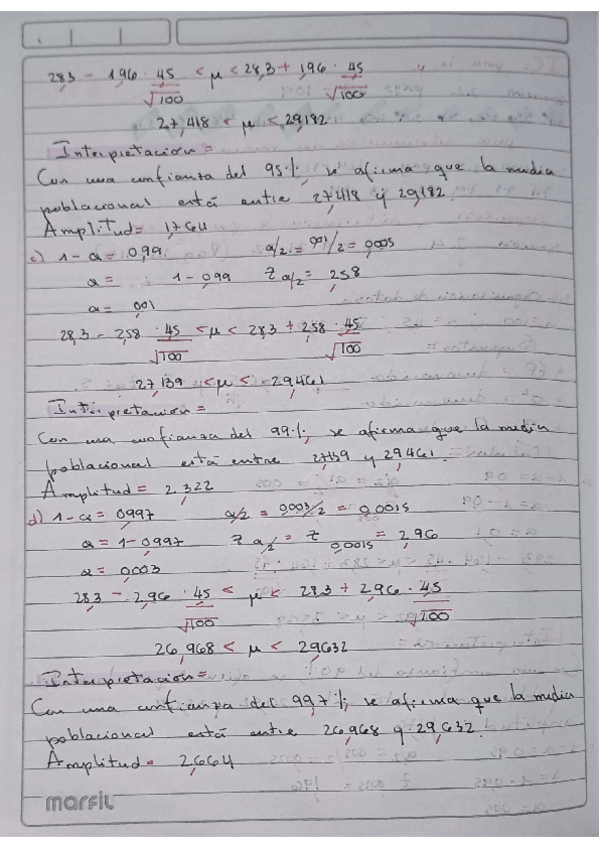 28,3 - 1,96 · 4,5/√100 < μ < 28,3 + 1,96 · 4,5/√100
27,418 < μ < 29,182
Interpretación =
Con una confianza del 95%, se afirma que la media
poblacional está entre 27,418 y 29,182.
Amplitud = 1,764
c) 1 - α = 0,99 α/2 = 0,01/2 = 0,005
α = 1 - 0,99 Z α/2 = 2,58
α = 0,01
28,3 - 2,58 · 4,5/√100 < μ < 28,3 + 2,58 · 4,5/√100
27,139 < μ < 29,461
Interpretación =
Con una confianza del 99%, se afirma que la media
poblacional está entre 27,139 y 29,461.
Amplitud = 2,322
d) 1 - α = 0,997 α/2 = 0,003/2 = 0,0015
α = 1 - 0,997 Z α/2 = Z 0,0015 = 2,96
α = 0,003
28,3 - 2,96 · 4,5/√100 < μ < 28,3 + 2,96 · 4,5/√100
26,968 < μ < 29,632
Interpretación =
Con una confianza del 99,7%, se afirma que la media
poblacional está entre 26,968 y 29,632.
Amplitud = 2,664
marfil